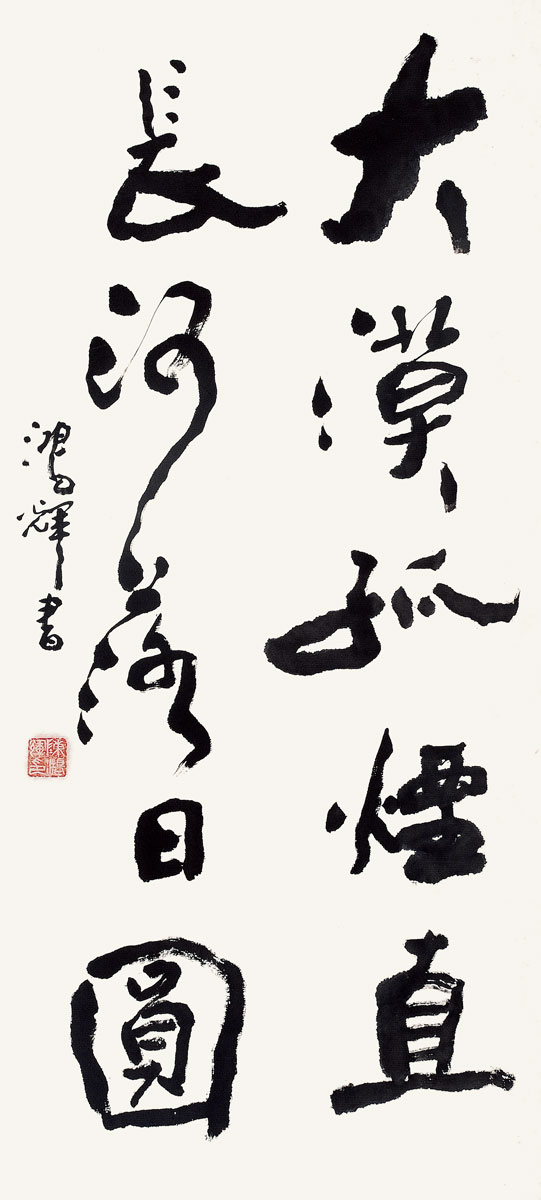 大漠孤煙直
長河落日圓
鴻輝書
陳鴻輝印